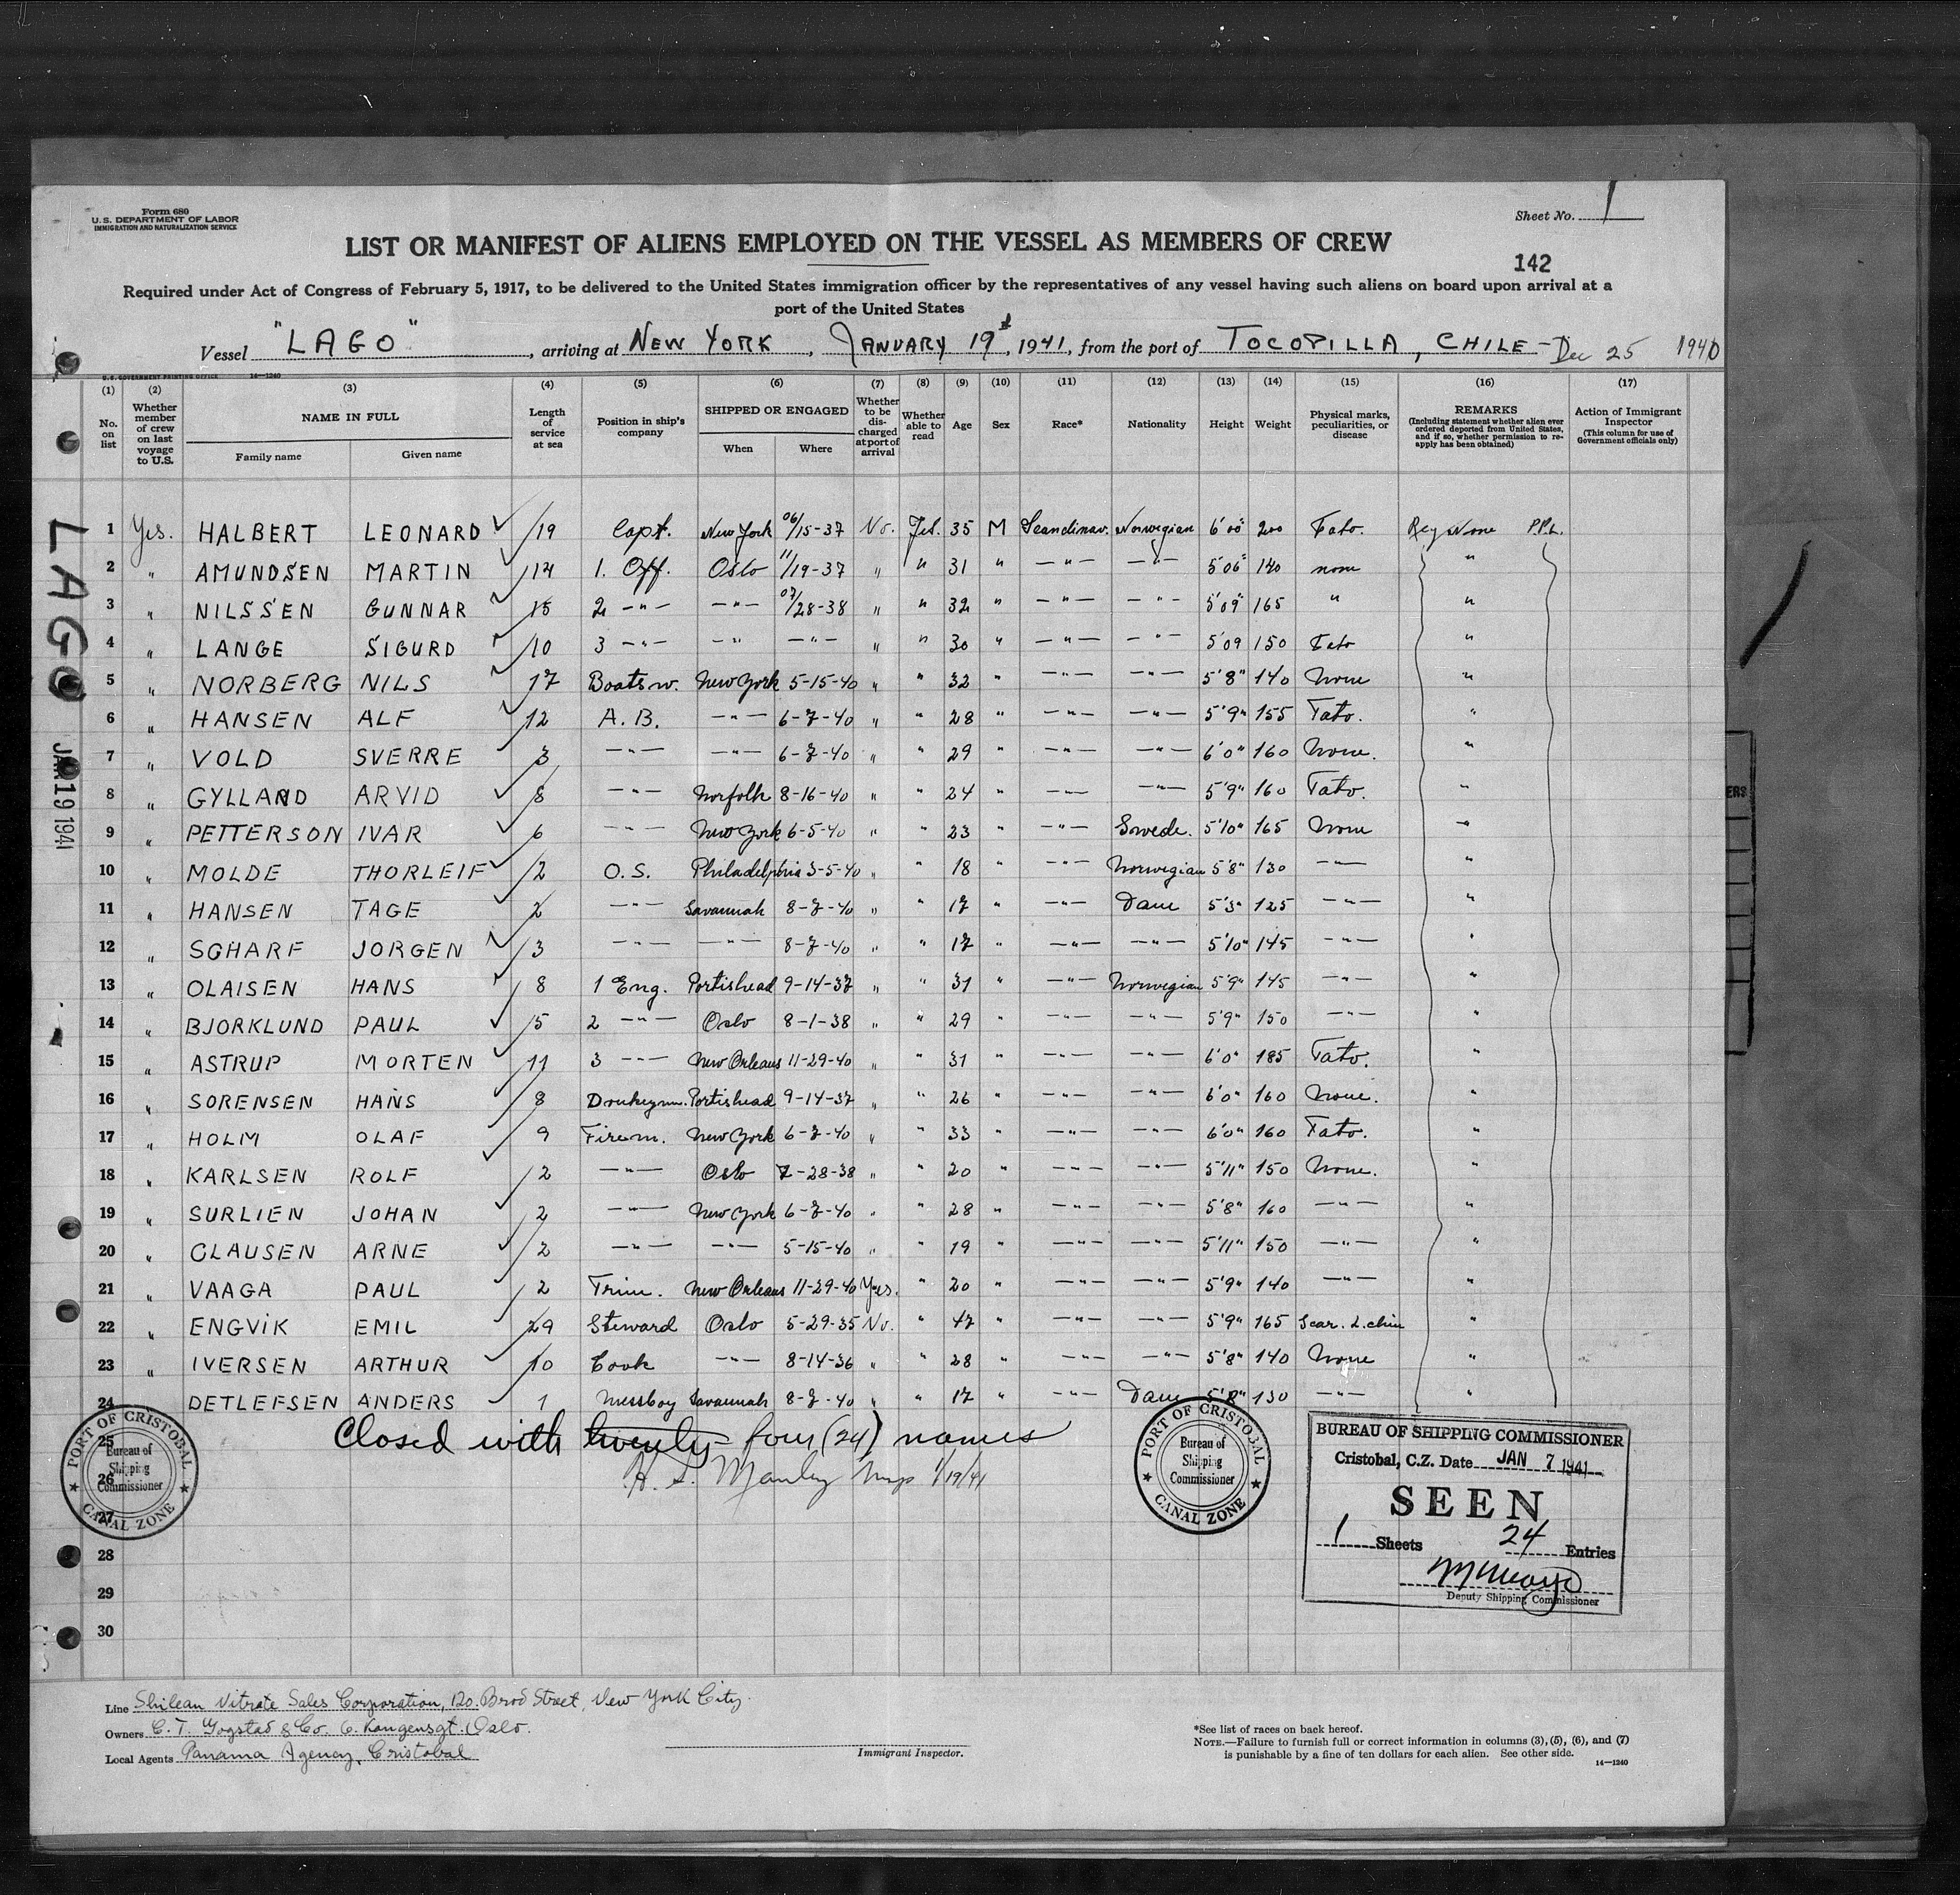 Form 680
U.S. DEPARTMENT OF LABOR
IMMIGRATION AND NATURALIZATION SERVICE
Sheet No. 1
LIST OR MANIFEST OF ALIENS EMPLOYED ON THE VESSEL AS MEMBERS OF CREW
142
Required under Act of Congress of February 5, 1917, to be delivered to the United States immigration officer by the representatives of any vessel having such aliens on board upon arrival at a
port of the United States
Vessel "LAGO", arriving at NEW YORK, JANUARY 19, 1941, from the port of TOCOPILLA, CHILE - Dec 25 1940
U.S. GOVERNMENT PRINTING OFFICE 14-1240
(1) (2) (3) (4) (5) (6) (7) (8) (9) (10) (11) (12) (13) (14) (15) (16) (17)
No. on list
Whether member of crew on last voyage to U.S.
NAME IN FULL
Family name Given name
Length of service at sea
Position in ship's company
SHIPPED OR ENGAGED
When Where
Whether to be discharged at port of arrival
Whether able to read
Age
Sex
Race*
Nationality
Height
Weight
Physical marks, peculiarities, or disease
REMARKS
(Including statement whether alien ever ordered deported from United States, and if so, whether permission to reapply has been obtained)
Action of Immigrant Inspector
(This column for use of Government officials only)
1 Yes. HALBERT LEONARD 19 Capt. New York 06/15-37 No. Yes. 35 M Scandinav. Norwegian 6'00" 200 Tato. Reg None P.P.L.
2 " AMUNDSEN MARTIN 14 1. Off. Oslo 11/19-37 " " 31 " -"- -"- 5'06" 140 none "
3 " NILSSEN GUNNAR 15 2 -"- -"- 07/28-38 " " 32 " -"- -"- 5'09" 165 " "
4 " LANGE SIGURD 10 3 -"- -"- -"- " " 30 " -"- -"- 5'09 150 Tato "
5 " NORBERG NILS 17 Boatsw. New York 5-15-40 " " 32 " -"- -"- 5'8" 140 None "
6 " HANSEN ALF 12 A.B. -"- 6-7-40 " " 28 " -"- -"- 5'9" 155 Tato. "
7 " VOLD SVERRE 3 -"- -"- 6-7-40 " " 29 " -"- -"- 6'0" 160 None. "
8 " GYLLAND ARVID 8 -"- Norfolk 8-16-40 " " 24 " -"- -"- 5'9" 160 Tato. "
9 " PETTERSON IVAR 6 -"- New York 6-5-40 " " 23 " -"- Swede. 5'10" 165 None "
10 " MOLDE THORLEIF 2 O.S. Philadelphia 3-5-40 " " 18 " -"- Norwegian 5'8" 130 -"- "
11 " HANSEN TAGE 2 -"- Savannah 8-7-40 " " 17 " -"- Dane 5'3" 125 -"- "
12 " SGHARF JORGEN 3 -"- -"- 8-7-40 " " 17 " -"- -"- 5'10" 145 -"- "
13 " OLAISEN HANS 8 1 Eng. Portishead 9-14-37 " " 31 " -"- Norwegian 5'9" 145 -"- "
14 " BJORKLUND PAUL 5 2 -"- Oslo 8-1-38 " " 29 " -"- -"- 5'9" 150 -"- "
15 " ASTRUP MORTEN 11 3 -"- New Orleans 11-29-40 " " 31 " -"- -"- 6'0" 185 Tato. "
16 " SORENSEN HANS 8 Donkeymn. Portishead 9-14-37 " " 26 " -"- -"- 6'0" 160 None. "
17 " HOLM OLAF 9 Firem. New York 6-7-40 " " 33 " -"- -"- 6'0" 160 Tato. "
18 " KARLSEN ROLF 2 -"- Oslo 7-28-38 " " 20 " -"- -"- 5'11" 150 None. "
19 " SURLIEN JOHAN 2 -"- New York 6-7-40 " " 28 " -"- -"- 5'8" 160 -"- "
20 " CLAUSEN ARNE 2 -"- -"- 5-15-40 " " 19 " -"- -"- 5'11" 150 -"- "
21 " VAAGA PAUL 2 Trim. New Orleans 11-29-40 Yes. " 20 " -"- -"- 5'9" 140 -"- "
22 " ENGVIK EMIL 29 Steward Oslo 5-29-35 No. " 47 " -"- -"- 5'9" 165 Scar. L. chin "
23 " IVERSEN ARTHUR 10 Cook -"- 8-14-36 " " 28 " -"- -"- 5'8" 140 None "
24 " DETLEFSEN ANDERS 1 Messboy Savannah 8-7-40 " " 17 " -"- Dane 5'8" 130 -"- "
25
Closed with twenty four (24) names
26
H. S. Manley Insp 1/19/41
27
28
29
30
LAGO
JAN 19 1941
PORT OF CRISTOBAL
Bureau of Shipping Commissioner
CANAL ZONE
PORT OF CRISTOBAL
Bureau of Shipping Commissioner
CANAL ZONE
BUREAU OF SHIPPING COMMISSIONER
Cristobal, C.Z. Date JAN 7 1941
SEEN
1 Sheets 24 Entries
Deputy Shipping Commissioner
Line Shilean Nitrate Sales Corporation, 120. Brod Street, New York City.
Owners C. T. Gogstad & Co. 6. Kongensgt. Oslo.
Local Agents Panama Agency, Cristobal
Immigrant Inspector.
*See list of races on back hereof.
NOTE.—Failure to furnish full or correct information in columns (3), (5), (6), and (7)
is punishable by a fine of ten dollars for each alien. See other side.
14-1240
ERS